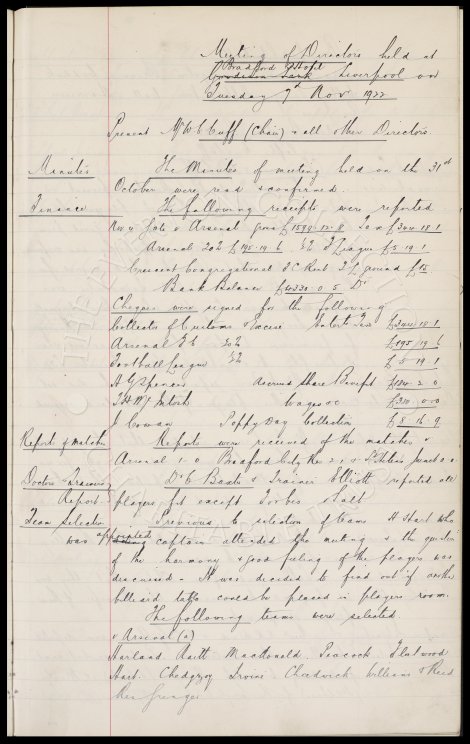 Meeting of Directors held at
Bradford Hotel
Goodison Park Liverpool on
Tuesday 7th Nov 1922
Present Mr W C Cuff (Chair) & all other Directors.
Minutes
The Minutes of meeting held on the 31st
October were read & confirmed.
Finance
The following receipts were reported
Nov 4 Gate v Arsenal gross £1599.12.8 Tax £344.18.1
Arsenal 20% £195.19.6 ½% F League £5.19.1
Crescent Congregational F C Rent of ground £15
Bank Balance £4330.0.5 Dr
Cheques were signed for the following
Collector of Customs & Excise Entertt Tax £344.18.1
Arsenal F C 20% £195.19.6
Football League ½% £5.19.1
A G Spencer Accrued Share Benefit
T H McIntosh Wages &c £310.0.0
J Cowan Poppy Day Collection £8.16.9
Report of matches
Reports were received of the matches v
Arsenal 1-0 Bradford City Res 2-1 &
Doctors & Training
Report
Dr C Baxter & Trainer Elliott reported all
players fit except Forbes & Salt
Team Selection
Previous to selection of teams H Hart who
was appointed captain attended the meeting & the question
of the harmony & good feeling of the players was
discussed. It was decided to find out if another
billiard table could be placed in players room.
The following teams were selected.
v Arsenal (a)
Harland Raitt MacDonald Peacock Fleetwood
Hart. Chedgzoy Irvine Chadwick Williams & Reed
Res Grenyer